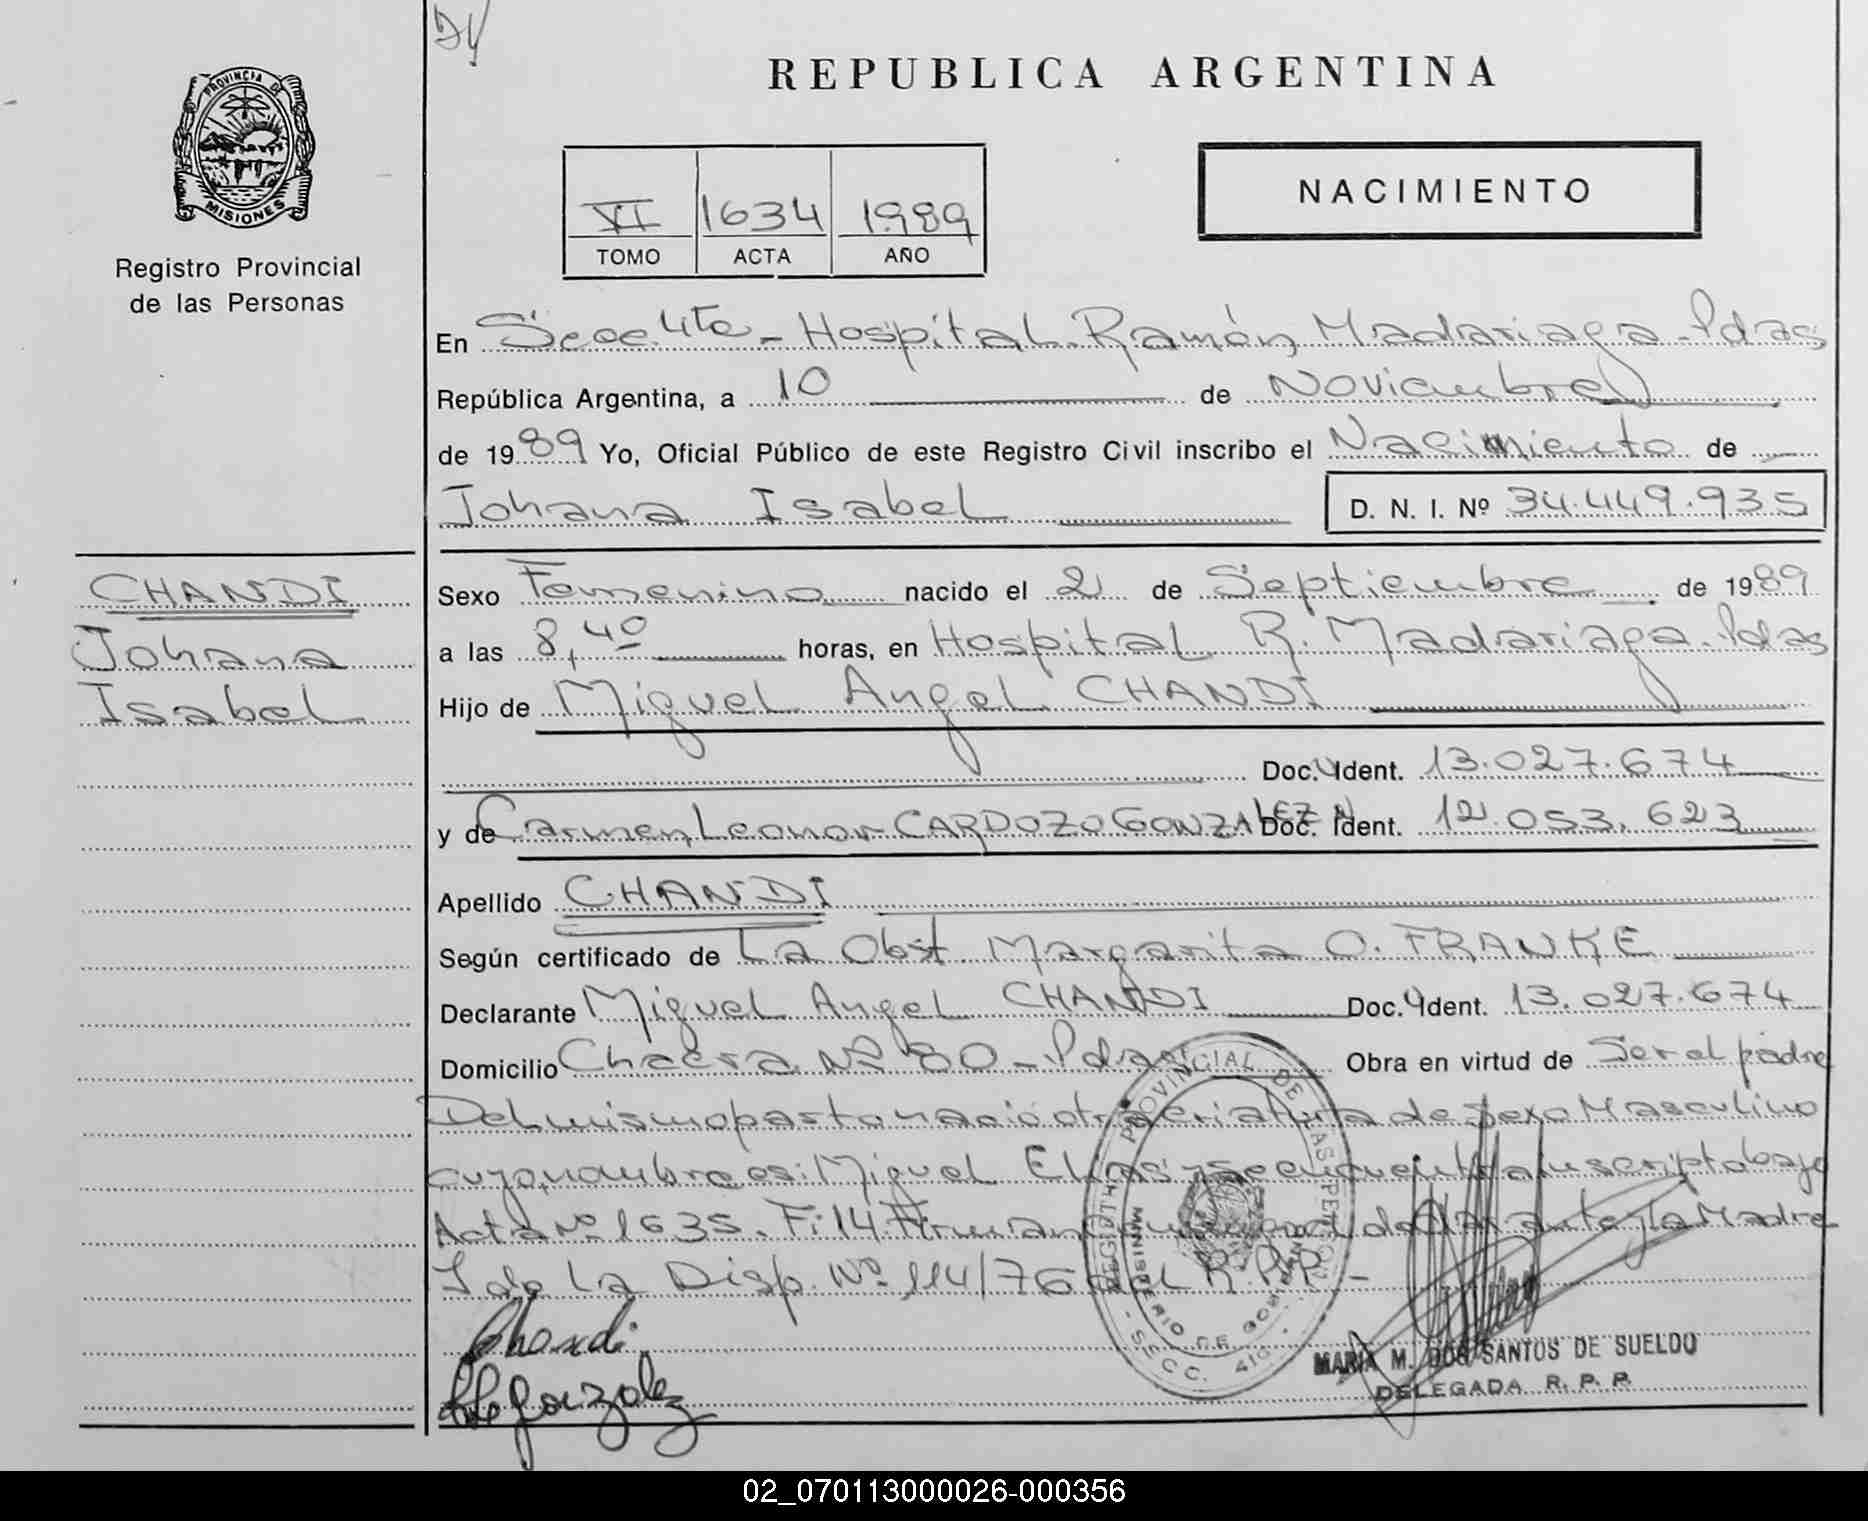 PROVINCIA DE
MISIONES
Registro Provincial
de las Personas
CHANDI
Johana
Isabel
REPUBLICA ARGENTINA
VI 1634 1989
TOMO ACTA AÑO
NACIMIENTO
En Secc 4ta - Hospital Ramón Madariaga - Pdas
República Argentina, a 10 de Noviembre
de 1989 Yo, Oficial Público de este Registro Civil inscribo el Nacimiento de
Johana Isabel D. N. I. Nº 34.449.935
Sexo Femenino nacido el 2 de Septiembre de 1989
a las 8,40 horas, en Hospital R. Madariaga - Pdas
Hijo de Miguel Angel CHANDI
Doc. Ident. 13.027.674
y de Carmen Leonor CARDOZO GONZALEZ Doc. Ident. 12.053.623
Apellido CHANDI
Según certificado de La Obst. Margarita O. FRANKE
Declarante Miguel Angel CHANDI Doc. Ident. 13.027.674
Domicilio Chacra Nº 80 - Pdas Obra en virtud de Ser el padre
Del mismo parto nació otra criatura de sexo Masculino
cuyo nombre es: Miguel Elias y se encuentra inscripto bajo
Acta Nº 1635. Fi: 14. Firman el declarante y la Madre
I de la Disp. Nº 114/76 del R.P.P. -
REGISTRO PROVINCIAL DE LAS PERSONAS
MINISTERIO DE GOBIERNO
- SECC. 4ta -
Chandi
Gonzalez
MARIA M. DOS SANTOS DE SUELDO
DELEGADA R. P. P.
02_070113000026-000356